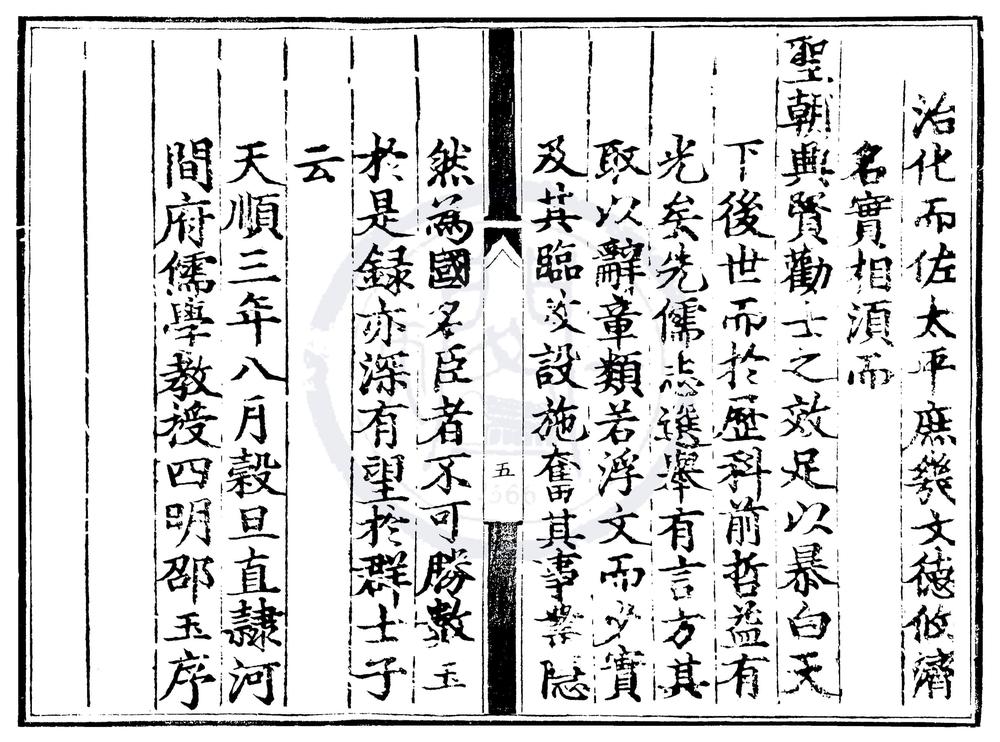 治化而佐太平庶幾文德攸濟
名實相須而
聖朝興賢勸士之效足以暴白天
下後世而於歷科前哲益有
光矣先儒𢗅選舉有言方其
取以辭章類若浮文而少實
及其臨政設施奮其事業隠
五
然為國名臣者不可勝數玉
於是録亦深有望於群士子
云
天順三年八月穀旦直隸河
間府儒學教授四明邵玉序